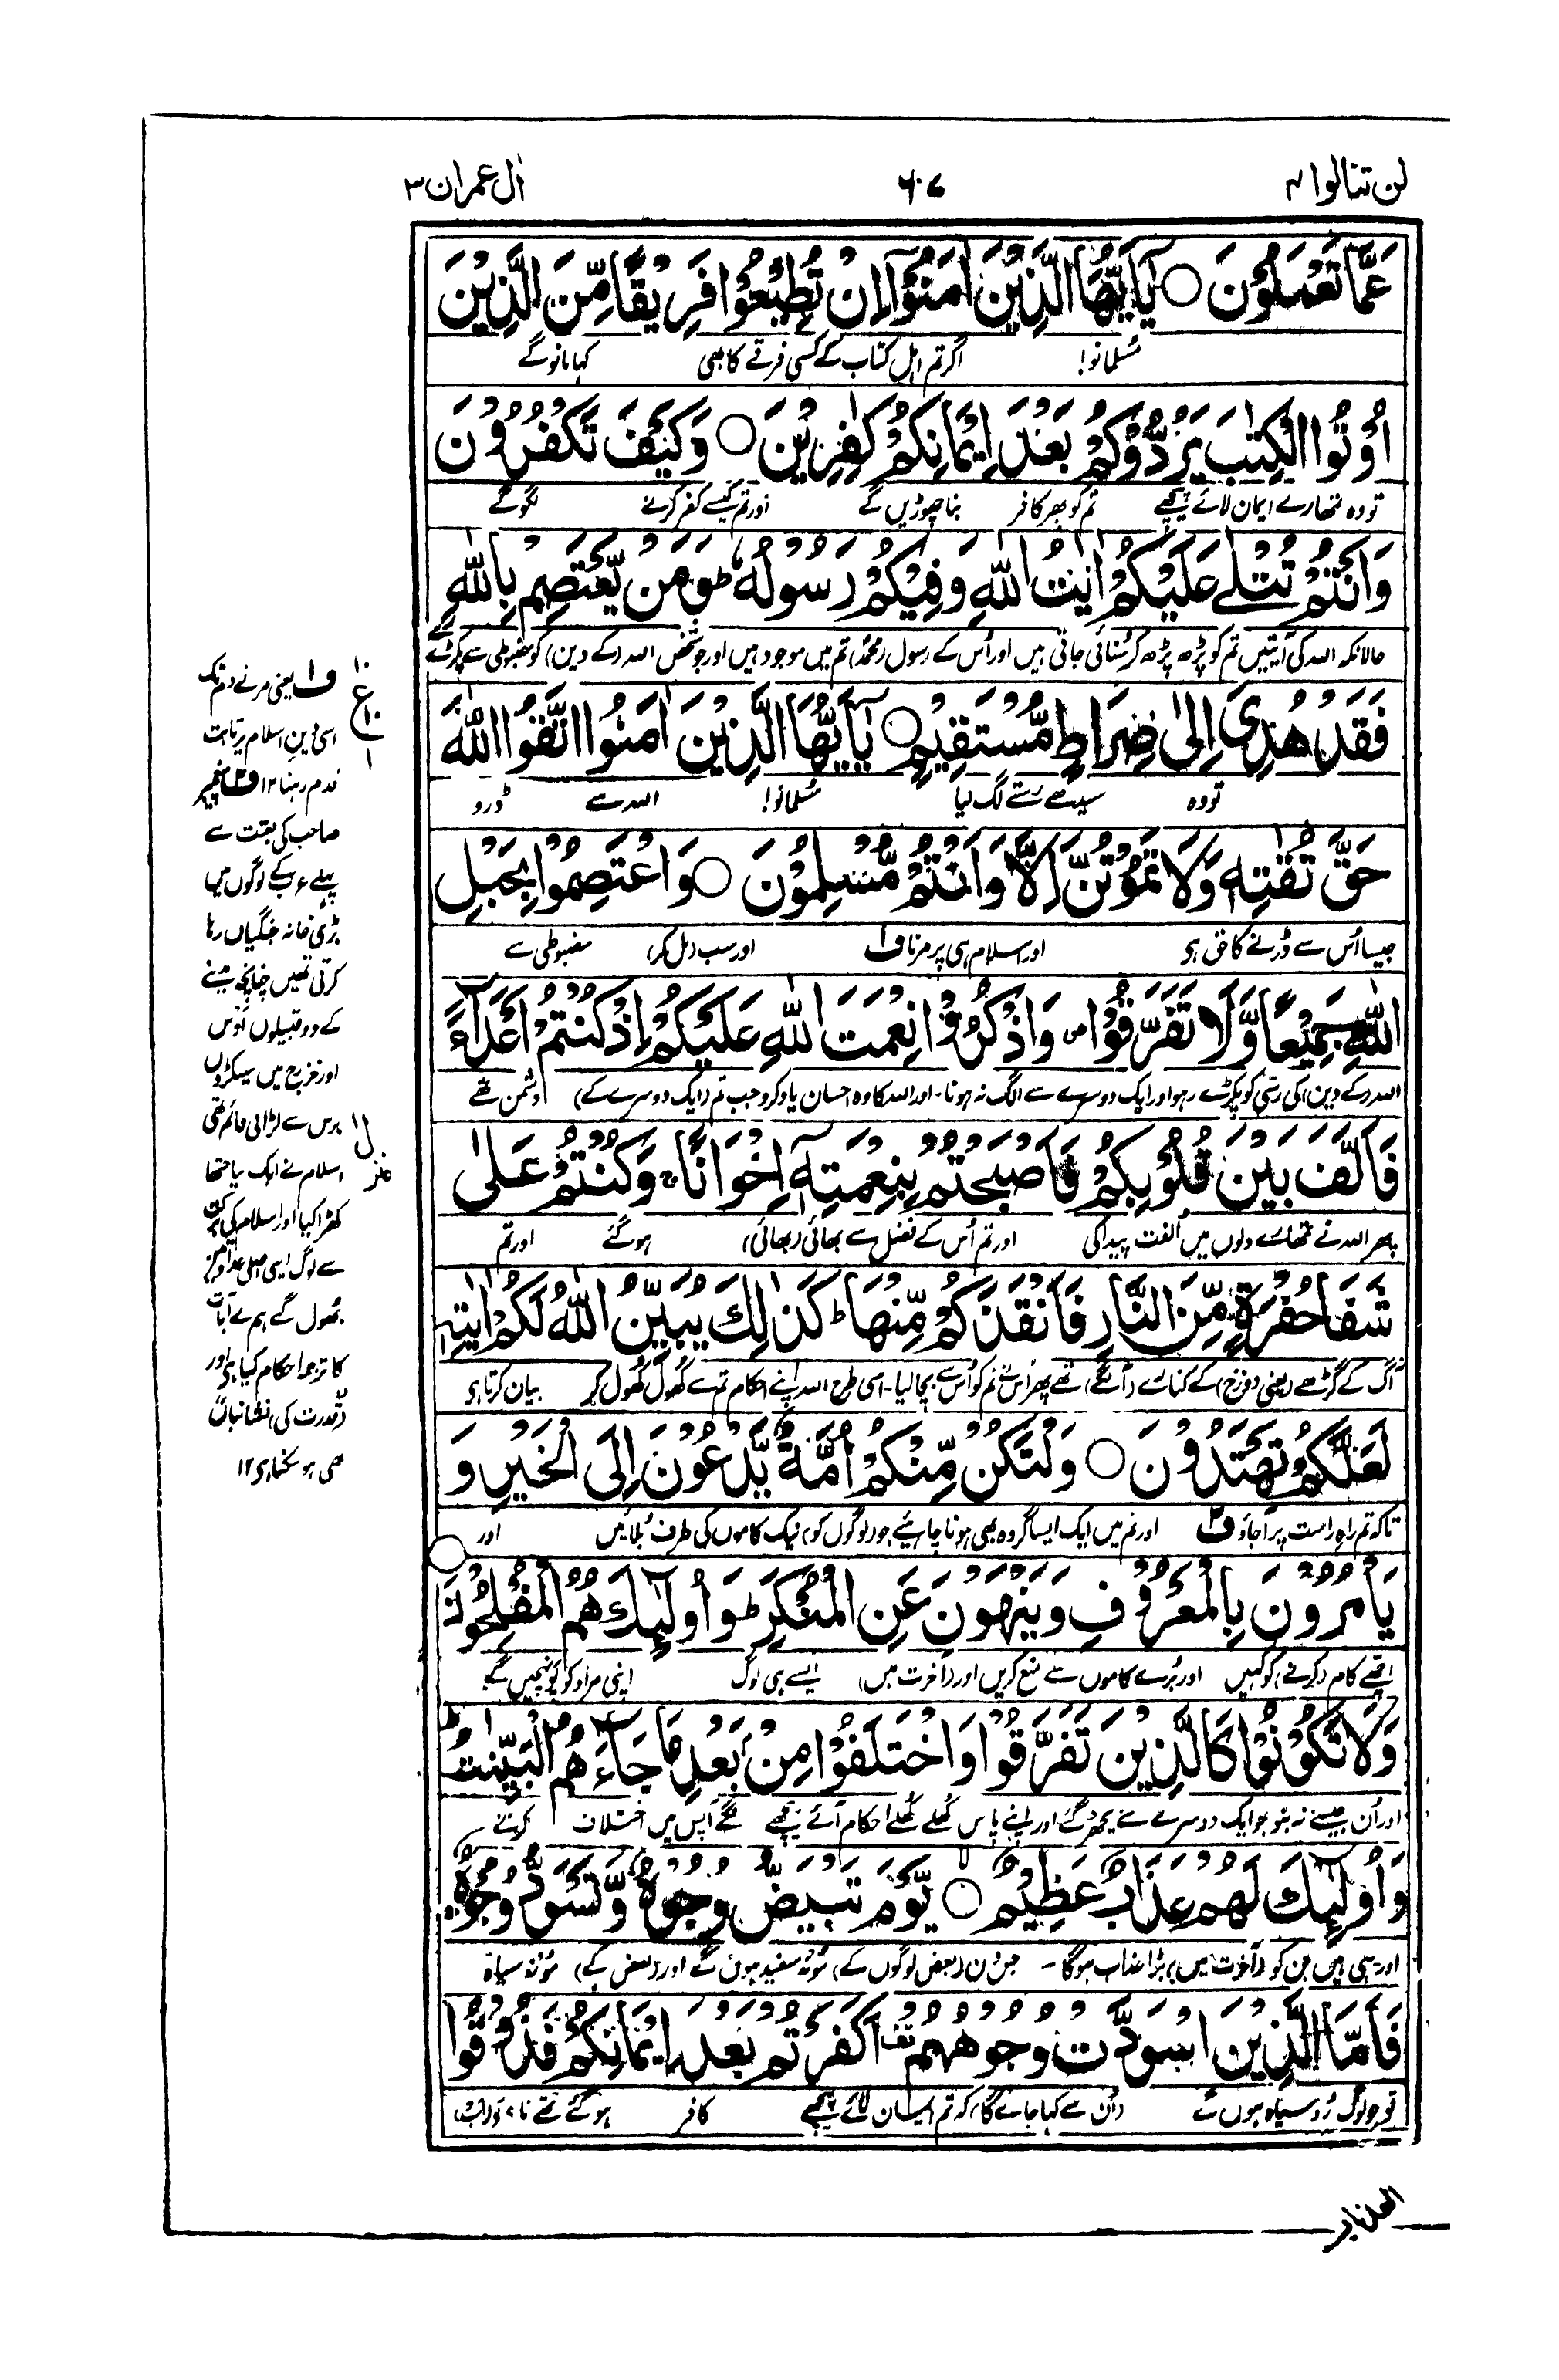 لن تنالوا ۴
۶۰۷
اٰل عمران ۳
عَمَّا تَعْمَلُوْنَ ○ يٰۤاَيُّهَا الَّذِيْنَ اٰمَنُوْۤا اِنْ تُطِيْعُوْا فَرِيْقًا مِّنَ الَّذِيْنَ
مُسلمانو! اگر تم اہلِ کتاب کے کسی فرقے کا بھی کہا مانو گے
اُوْتُوا الْكِتٰبَ يَرُدُّوْكُمْ بَعْدَ اِيْمَانِكُمْ كٰفِرِيْنَ ○ وَكَيْفَ تَكْفُرُوْنَ
تو وہ تمھارے ایمان لائے پیچھے تم کو پھر کافر بنا چھوڑیں گے اور تم کیسے کفر کرنے لگو گے
وَاَنْتُمْ تُتْلٰى عَلَيْكُمْ اٰيٰتُ اللّٰهِ وَفِيْكُمْ رَسُوْلُهٗ ؕ وَمَنْ يَّعْتَصِمْ بِاللّٰهِ
حالانکہ اللہ کی آیتیں تم کو پڑھ پڑھ کر سُنائی جاتی ہیں اور اُس کے رسول (محمدؐ) تم میں موجود ہیں اور جو شخص اللہ (کے دین) کو مضبوطی سے پکڑے رہے
فَقَدْ هُدِيَ اِلٰى صِرَاطٍ مُّسْتَقِيْمٍ ○ يٰۤاَيُّهَا الَّذِيْنَ اٰمَنُوا اتَّقُوا اللّٰهَ
تو وہ سیدھے رستے لگ لیا مُسلمانو! اللہ سے ڈرو
حَقَّ تُقٰتِهٖ وَلَا تَمُوْتُنَّ اِلَّا وَاَنْتُمْ مُّسْلِمُوْنَ ○ وَاعْتَصِمُوْا بِحَبْلِ
جیسا اُس سے ڈرنے کا حق ہو اور اسلام ہی پر مرنا ف۱ اور سب (مل کر) مضبوطی سے
اللّٰهِ جَمِيْعًا وَّلَا تَفَرَّقُوْا ۪ وَاذْكُرُوْا نِعْمَتَ اللّٰهِ عَلَيْكُمْ اِذْ كُنْتُمْ اَعْدَآءً
اللہ (کے دین) کی رسّی کو پکڑے رہو اور ایک دوسرے سے الگ نہ ہونا۔ اور اللہ کا وہ احسان یاد کرو جب تم (ایک دوسرے کے) دشمن تھے
فَاَلَّفَ بَيْنَ قُلُوْبِكُمْ فَاَصْبَحْتُمْ بِنِعْمَتِهٖۤ اِخْوَانًا ۚ وَكُنْتُمْ عَلٰى
پھر اللہ نے تمھارے دلوں میں اُلفت پیدا کی اور تم اُس کے فضل سے بھائی (بھائی) ہو گئے اور تم
شَفَا حُفْرَةٍ مِّنَ النَّارِ فَاَنْقَذَكُمْ مِّنْهَا ؕ كَذٰلِكَ يُبَيِّنُ اللّٰهُ لَكُمْ اٰيٰتِهٖ
آگ کے گڑھے (یعنی دوزخ) کے کنارے (آلگے) تھے پھر اُس نے تم کو اُس سے بچا لیا۔ اسی طرح اللہ اپنے احکام تم سے کھول کھول کر بیان کرتا ہو
لَعَلَّكُمْ تَهْتَدُوْنَ ○ وَلْتَكُنْ مِّنْكُمْ اُمَّةٌ يَّدْعُوْنَ اِلَى الْخَيْرِ وَ
تاکہ تم راہِ راست پر آجاؤ ف۲ اور تم میں ایک ایسا گروہ بھی ہونا چاہئیے جو (لوگوں کو) نیک کاموں کی طرف بُلائیں اور
يَأْمُرُوْنَ بِالْمَعْرُوْفِ وَيَنْهَوْنَ عَنِ الْمُنْكَرِ ؕ وَاُولٰٓئِكَ هُمُ الْمُفْلِحُوْنَ
اچھے کام (کرنے) کو کہیں اور بُرے کاموں سے منع کریں اور (آخرت میں) ایسے ہی لوگ اپنی مراد کو پہنچیں گے
وَلَا تَكُوْنُوْا كَالَّذِيْنَ تَفَرَّقُوْا وَاخْتَلَفُوْا مِنْۢ بَعْدِ مَا جَآءَهُمُ الْبَيِّنٰتُ ؕ
اور اُن جیسے نہ بنو جو ایک دوسرے سے بچھڑ گئے اور اپنے پاس کھلے کھلے احکام آئے پیچھے لگے آپس میں اختلاف کرنے
وَاُولٰٓئِكَ لَهُمْ عَذَابٌ عَظِيْمٌ ○ يَّوْمَ تَبْيَضُّ وُجُوْهٌ وَّتَسْوَدُّ وُجُوْهٌ
اور یہی ہیں جن کو (آخرت میں) بڑا عذاب ہوگا۔ جس دن (بعض لوگوں کے) مونہ سفید ہوں گے اور (بعض کے) مونہ سیاہ
فَاَمَّا الَّذِيْنَ اسْوَدَّتْ وُجُوْهُهُمْ ۫ اَكَفَرْتُمْ بَعْدَ اِيْمَانِكُمْ فَذُوْقُوا
تو جو لوگ رُو سیاہ ہوں گے (اُن سے کہا جائے گا) کہ تم ایمان لائے پیچھے کافر ہو گئے تھے نا؟
ف۱ یعنی مرتے دم تک
اسی دینِ اسلام پر ثابت
قدم رہنا ۱۲ ف۲ پیغمبر
صاحب کی بعثت سے
پہلے عرب کے لوگوں میں
بڑی خانہ جنگیاں رہا
کرتی تھیں چنانچہ مدینے
کے دو قبیلوں اَوْس
اور خزرج میں سیکڑوں
برس سے لڑائی قائم تھی
اسلام نے ایک یا جتھا
کھڑا کیا اور اسلام کی برکت
سے لوگ ایسی اصلی عداوتیں
بھول گئے ہم نے آیات
کا ترجمہ احکام کیا ہو اور
قدرت کی نشانیاں
بھی ہو سکتا ہو ۱۲
ع